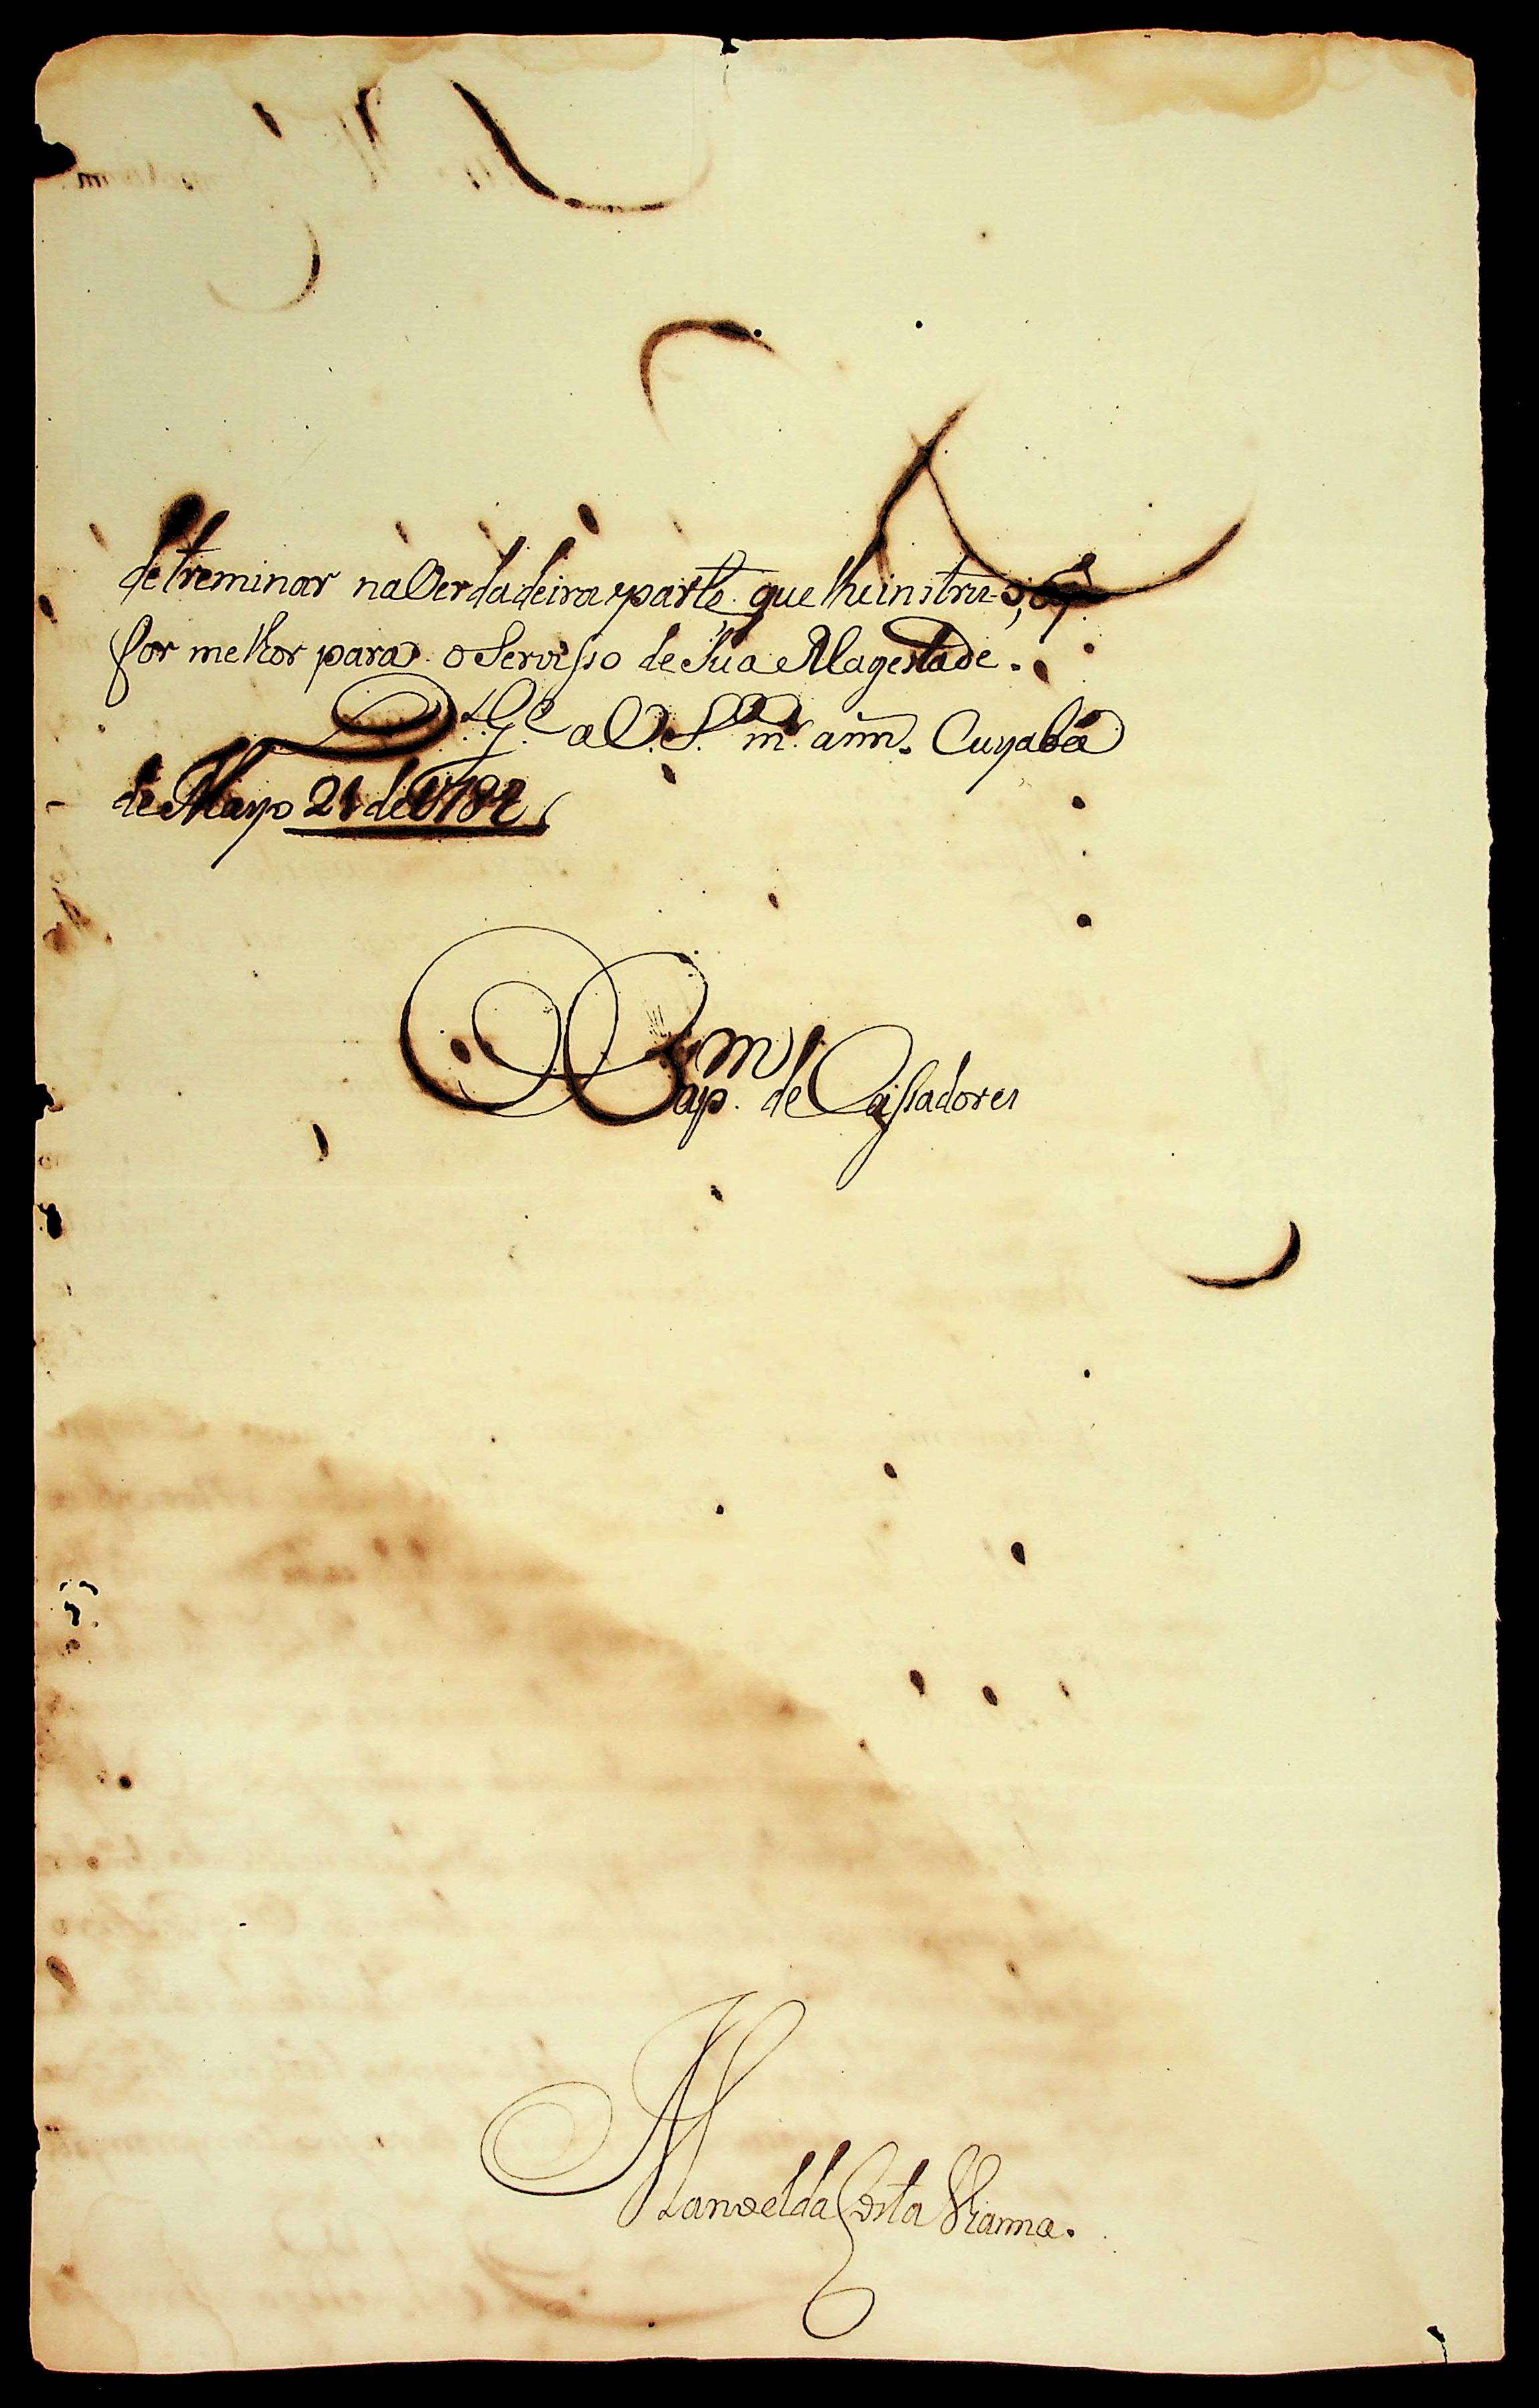 detreminar na Verdadeira parte que lhe instru
for melhor para o Servisso de Sua Magestade.
D.s G.e a V. S. m.s ann.s Cuyabá
de Mayo 21 de 178
Cap.m de Cassadores
Manoel da Costa Vianna.